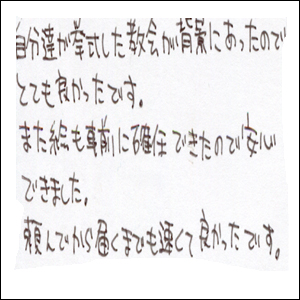 自分達が挙式した教会が背景にあったので
とても良かったです。
また絵も事前に確任できたので安心
できました。
頼んでから届くまでも速くて良かったです。